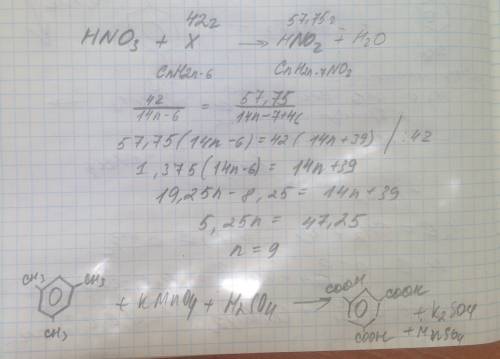 42г 57,75г
HNO3 + X → HNO2 + H2O
CnH2n-6 CnH2n-7NO2
42/14n-6 = 57,75/14n-7+46
57,75(14n-6) = 42(14n+39) /:42
1,375(14n-6) = 14n+39
19,25n - 8,25 = 14n+39
5,25n = 47,25
n = 9
CH3 CH3 CH3 + KMnO4 + H2SO4 → COOH COOH COOH + K2SO4
+ MnSO4